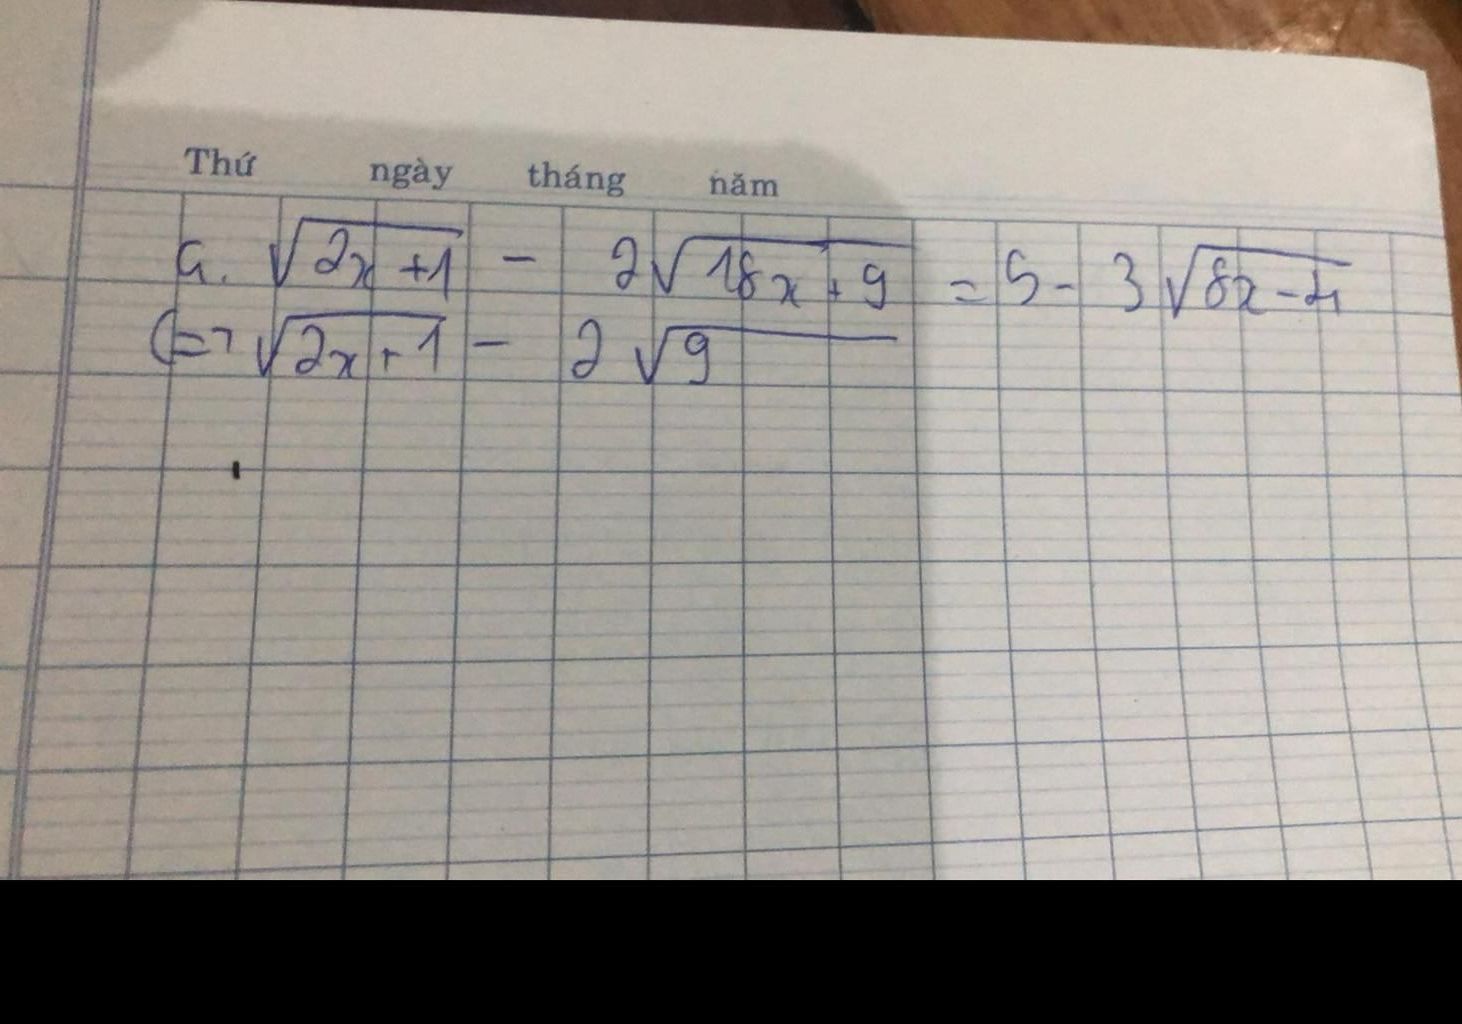 Thứ ngày tháng năm
a. √(2x+1) - 2√(18x+9) = 5 - 3√(8x-4)
(=> √(2x+1) - 2√9